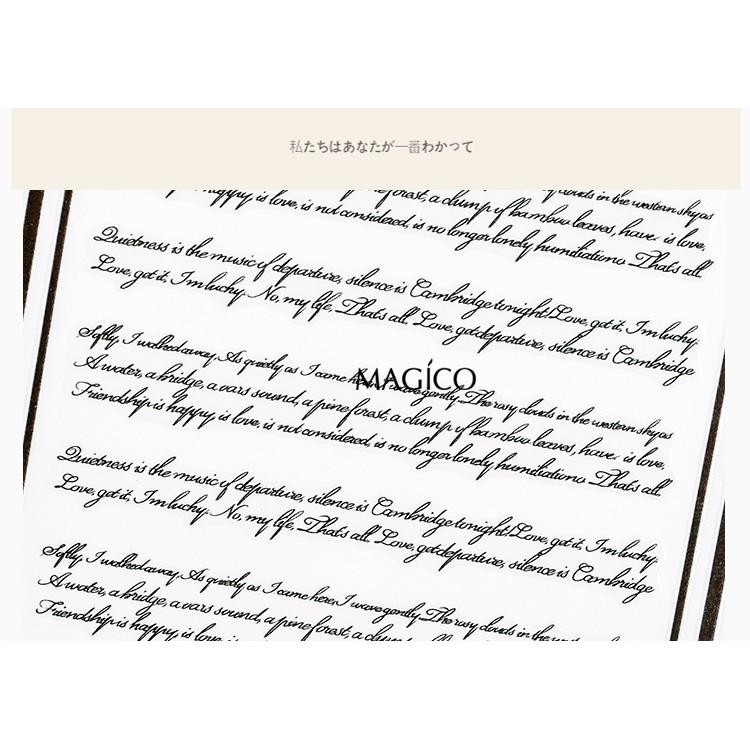 私たちはあなたが一番わかつて
happy, is love, is not considered, is no longer lonely humiliations. That's all
Quietness is the music of departure, silence is Cambridge tonight! Love, got it, I'm luchy.
Love, got it, I'm luchy. No, my life, That's all, Love, got departure, silence is Cambridge
MAGICO
Softly, I walked away, As quietly as I came gently. The rosy clouds in the western sky as
A water, a bridge, a vars sound, a pine forest, a clump of bambow leaves, have. is love,
Friendship is happy, is love, is not considered, is no longer lonely humiliations. That's all
Quietness is the music of departure, silence is Cambridge tonight! Love, got it, I'm luchy.
Love, got it, I'm luchy. No, my life, That's all, Love, got departure, silence is Cambridge
Softly, I walked away, As quietly as I came here, I wave gently. The rosy clouds in the
A water, a bridge, a vars sound, a pine forest, a clump
Friendship is happy, is love, is